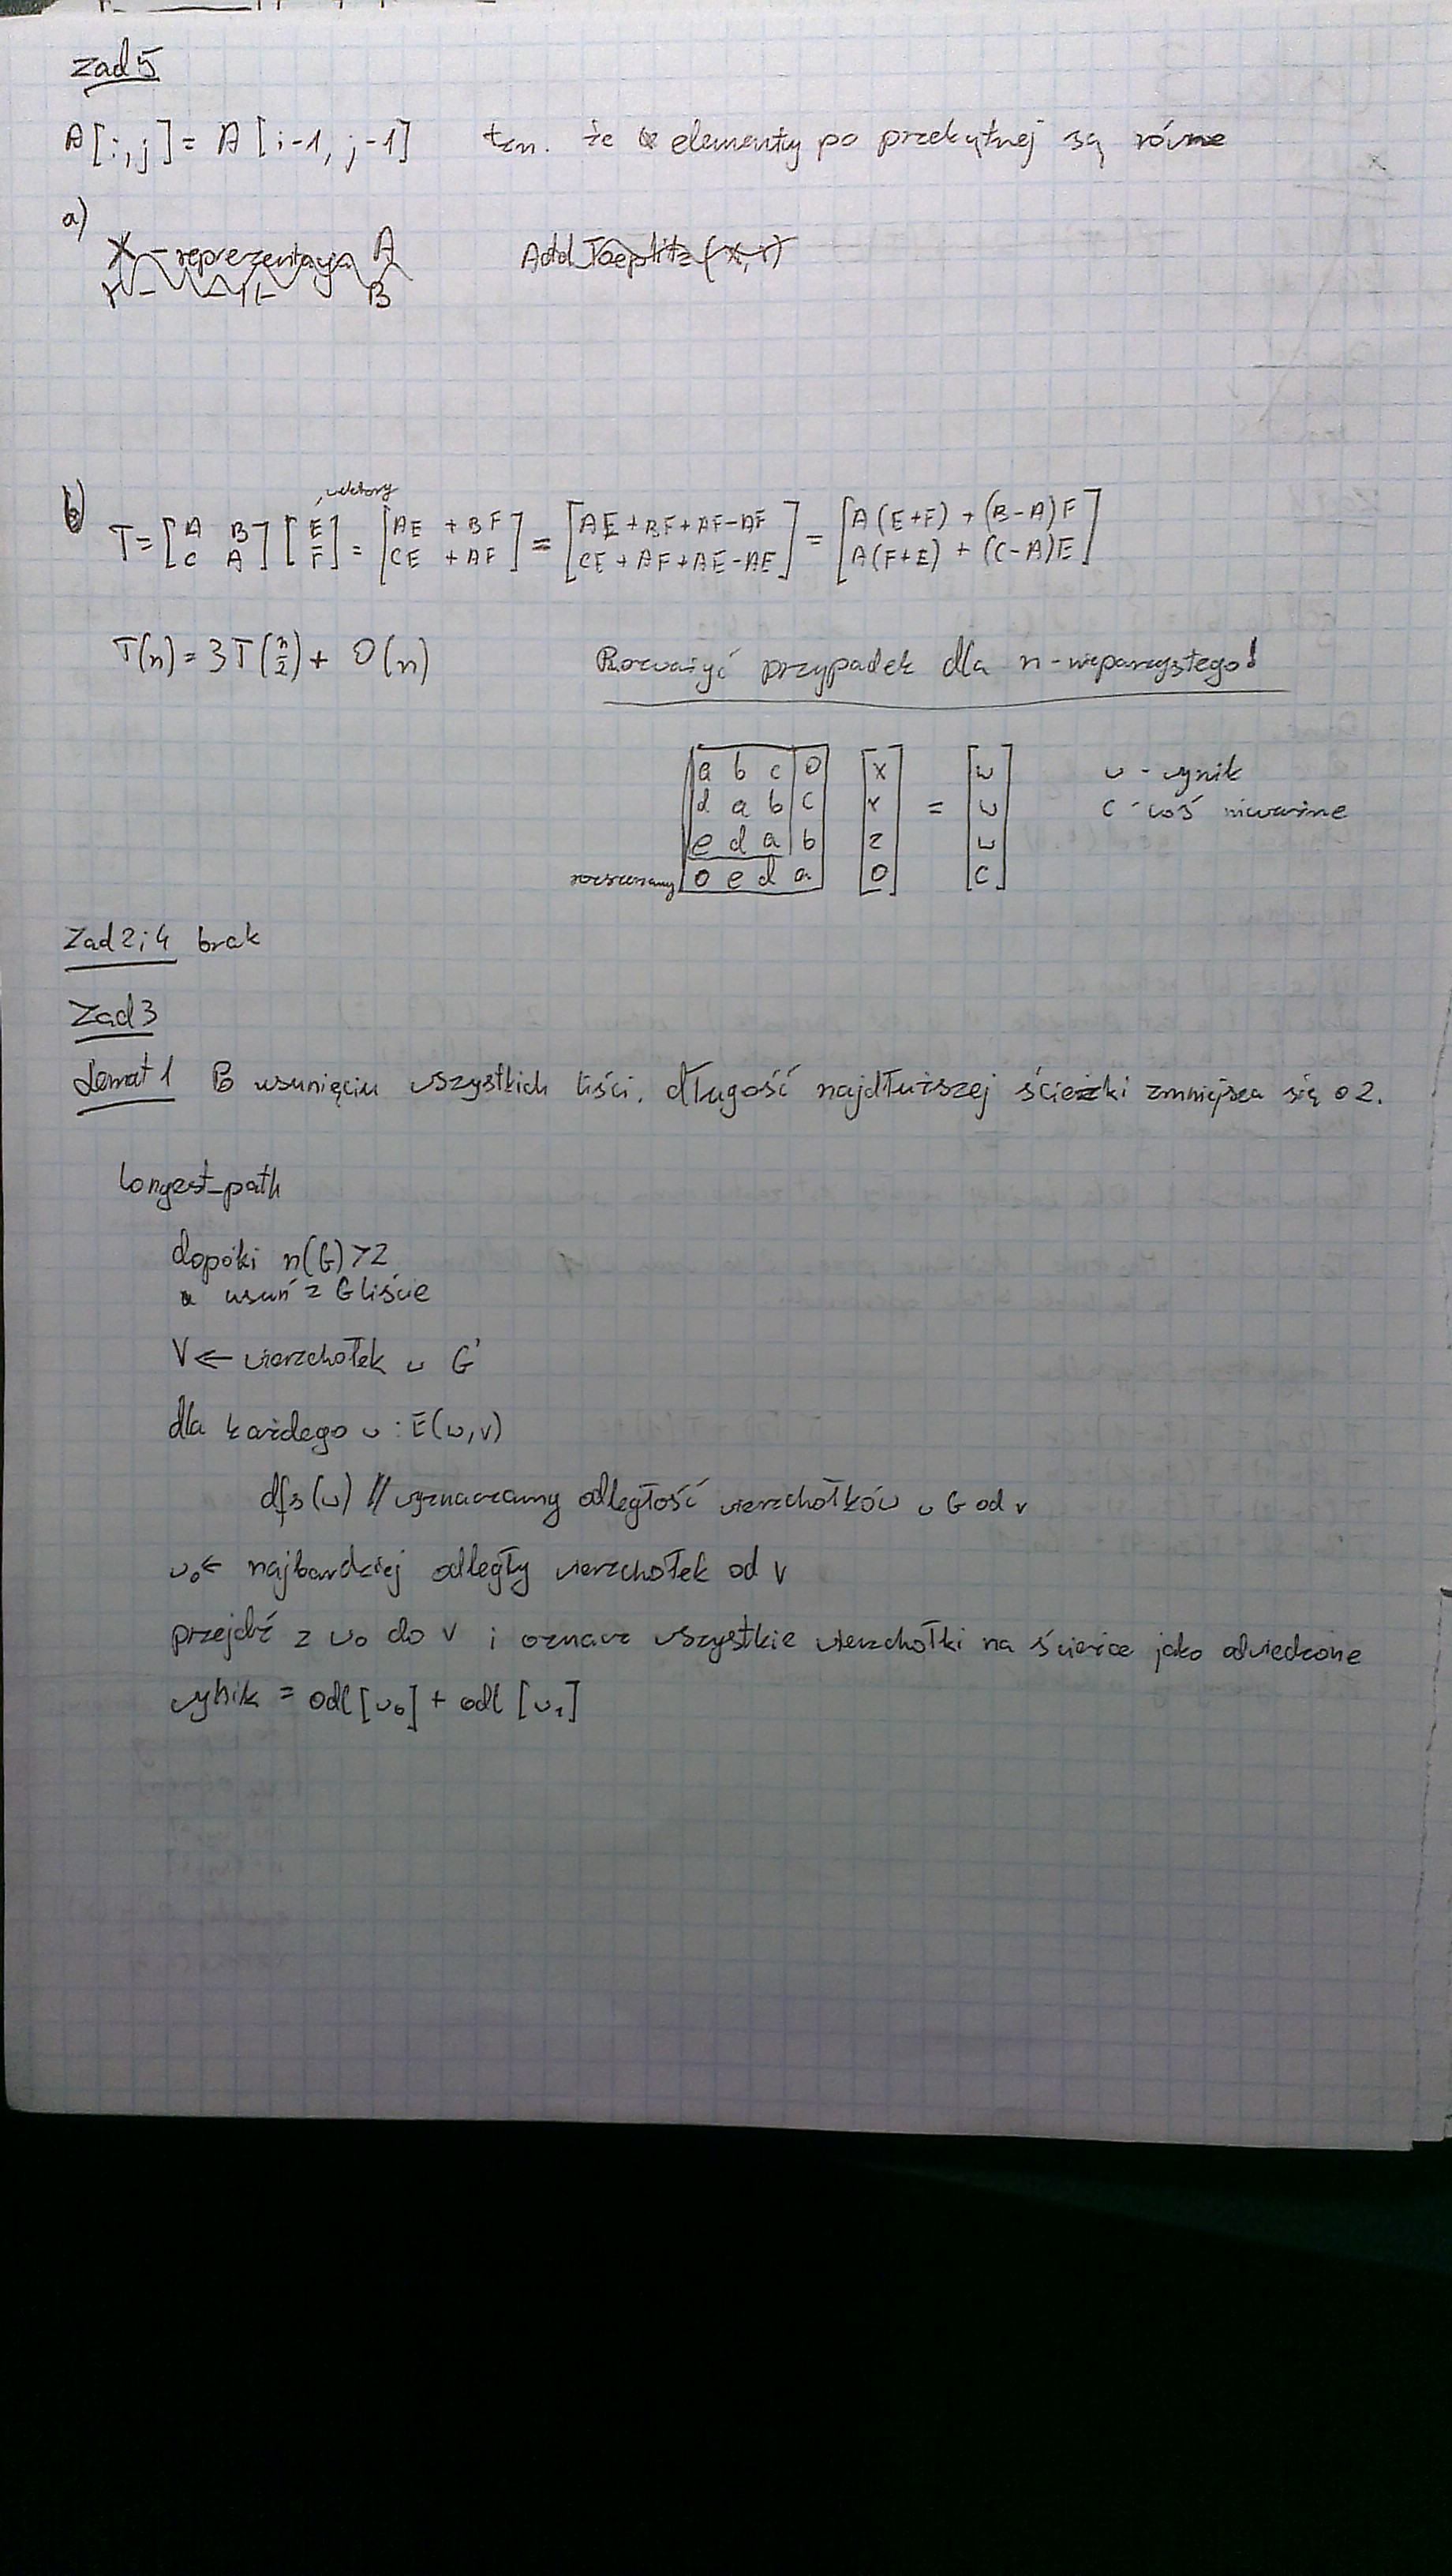 Zad 5
A[i,j] = A[i-1, j-1] tzn. że elementy po przekątnej są równe
a)
X - reprezentacja A Add Toeplitz (X, Y)
Y - -11- B
b) wektory
T = [A B; C A] [E; F] = [AE + BF; CE + AF] = [AE + BF + AF - AF; CE + AF + AE - AE] = [A(E+F) + (B-A)F; A(F+E) + (C-A)E]
T(n) = 3T(n/2) + O(n) Rozważyć przypadek dla n-nieparzystego!
a b c 0 x w w - wynik
d a b c Y = w c - coś nieważne
e d a b z w
rozszerzamy 0 e d a 0 c
Zad 2 i 4 brak
Zad 3
Lemat 1 Po usunięciu wszystkich liści, długość najdłuższej ścieżki zmniejsza się o 2.
longest_path
dopóki n(G) > 2
usuń z G liście
V ← wierzchołek w G'
dla każdego w : E(w,v)
dfs(w) // wyznaczamy odległość wierzchołków w G od v
w₀ ← najbardziej odległy wierzchołek od v
przejdź z w₀ do v i oznacz wszystkie wierzchołki na ścieżce jako odwiedzone
wynik = odl[w₀] + odl[w₁]